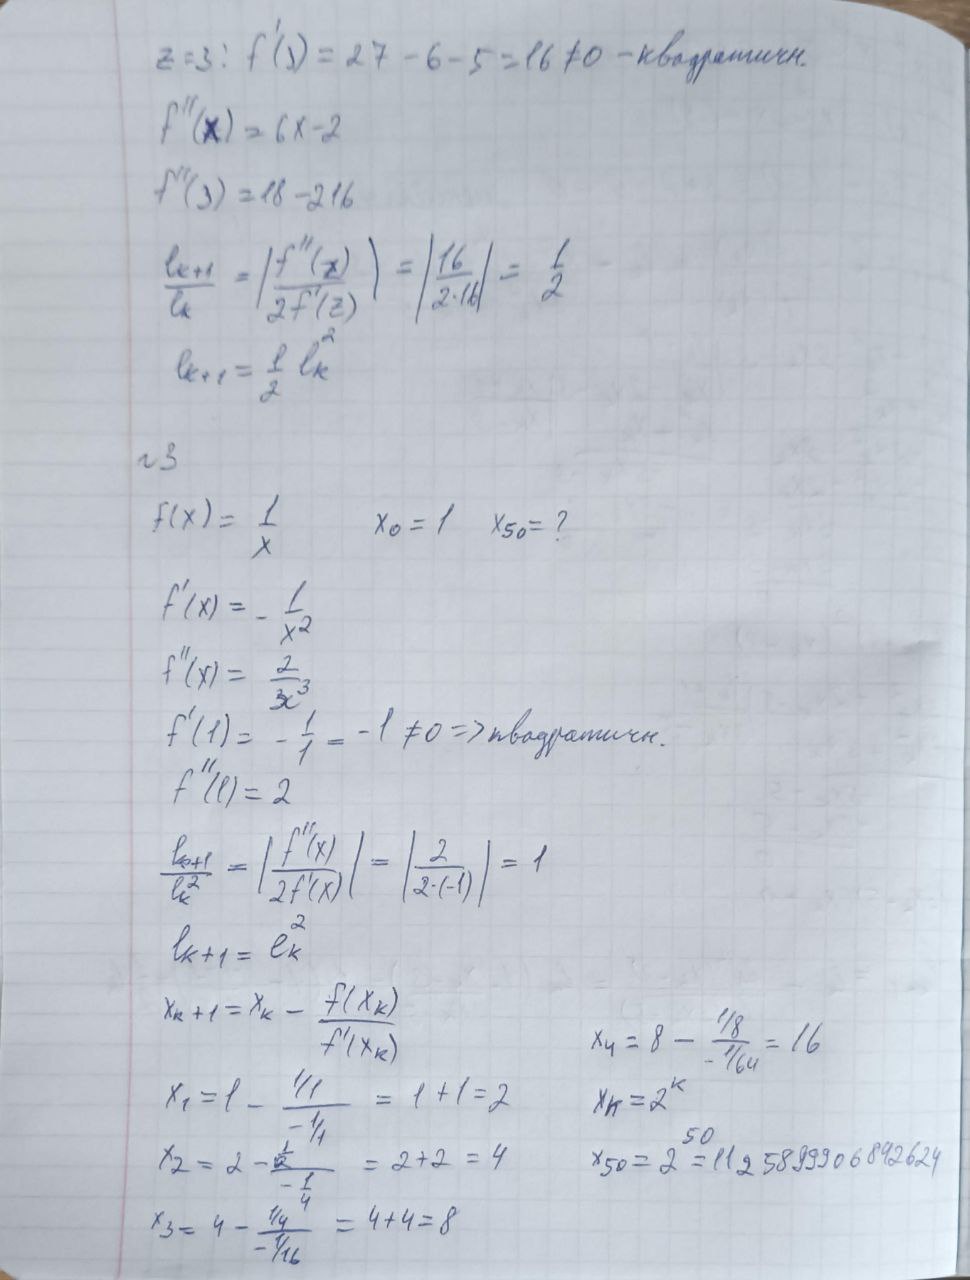 z=3: f'(3) = 27 - 6 - 5 = 16 ≠ 0 - квадратичн.
f''(x) = 6x - 2
f''(3) = 18 - 2 16
lk+1/lk = |f''(z)/2f'(z)| = |16/2·16| = 1/2
lk+1 = 1/2 lk^2
~3
f(x) = 1/x x0 = 1 x50 = ?
f'(x) = - 1/x^2
f''(x) = 2/x^3
f'(1) = - 1/1 = -1 ≠ 0 => квадратичн.
f''(1) = 2
lk+1/lk^2 = |f''(x)/2f'(x)| = |2/2·(-1)| = 1
lk+1 = ek^2
xk+1 = xk - f(xk)/f'(xk)
x1 = 1 - (1/1)/(-1/1) = 1 + 1 = 2
x2 = 2 - (1/2)/(-1/4) = 2 + 2 = 4
x3 = 4 - (1/4)/(-1/16) = 4 + 4 = 8
x4 = 8 - (1/8)/(-1/64) = 16
xk = 2^k
x50 = 2^50 = 1125899906842624